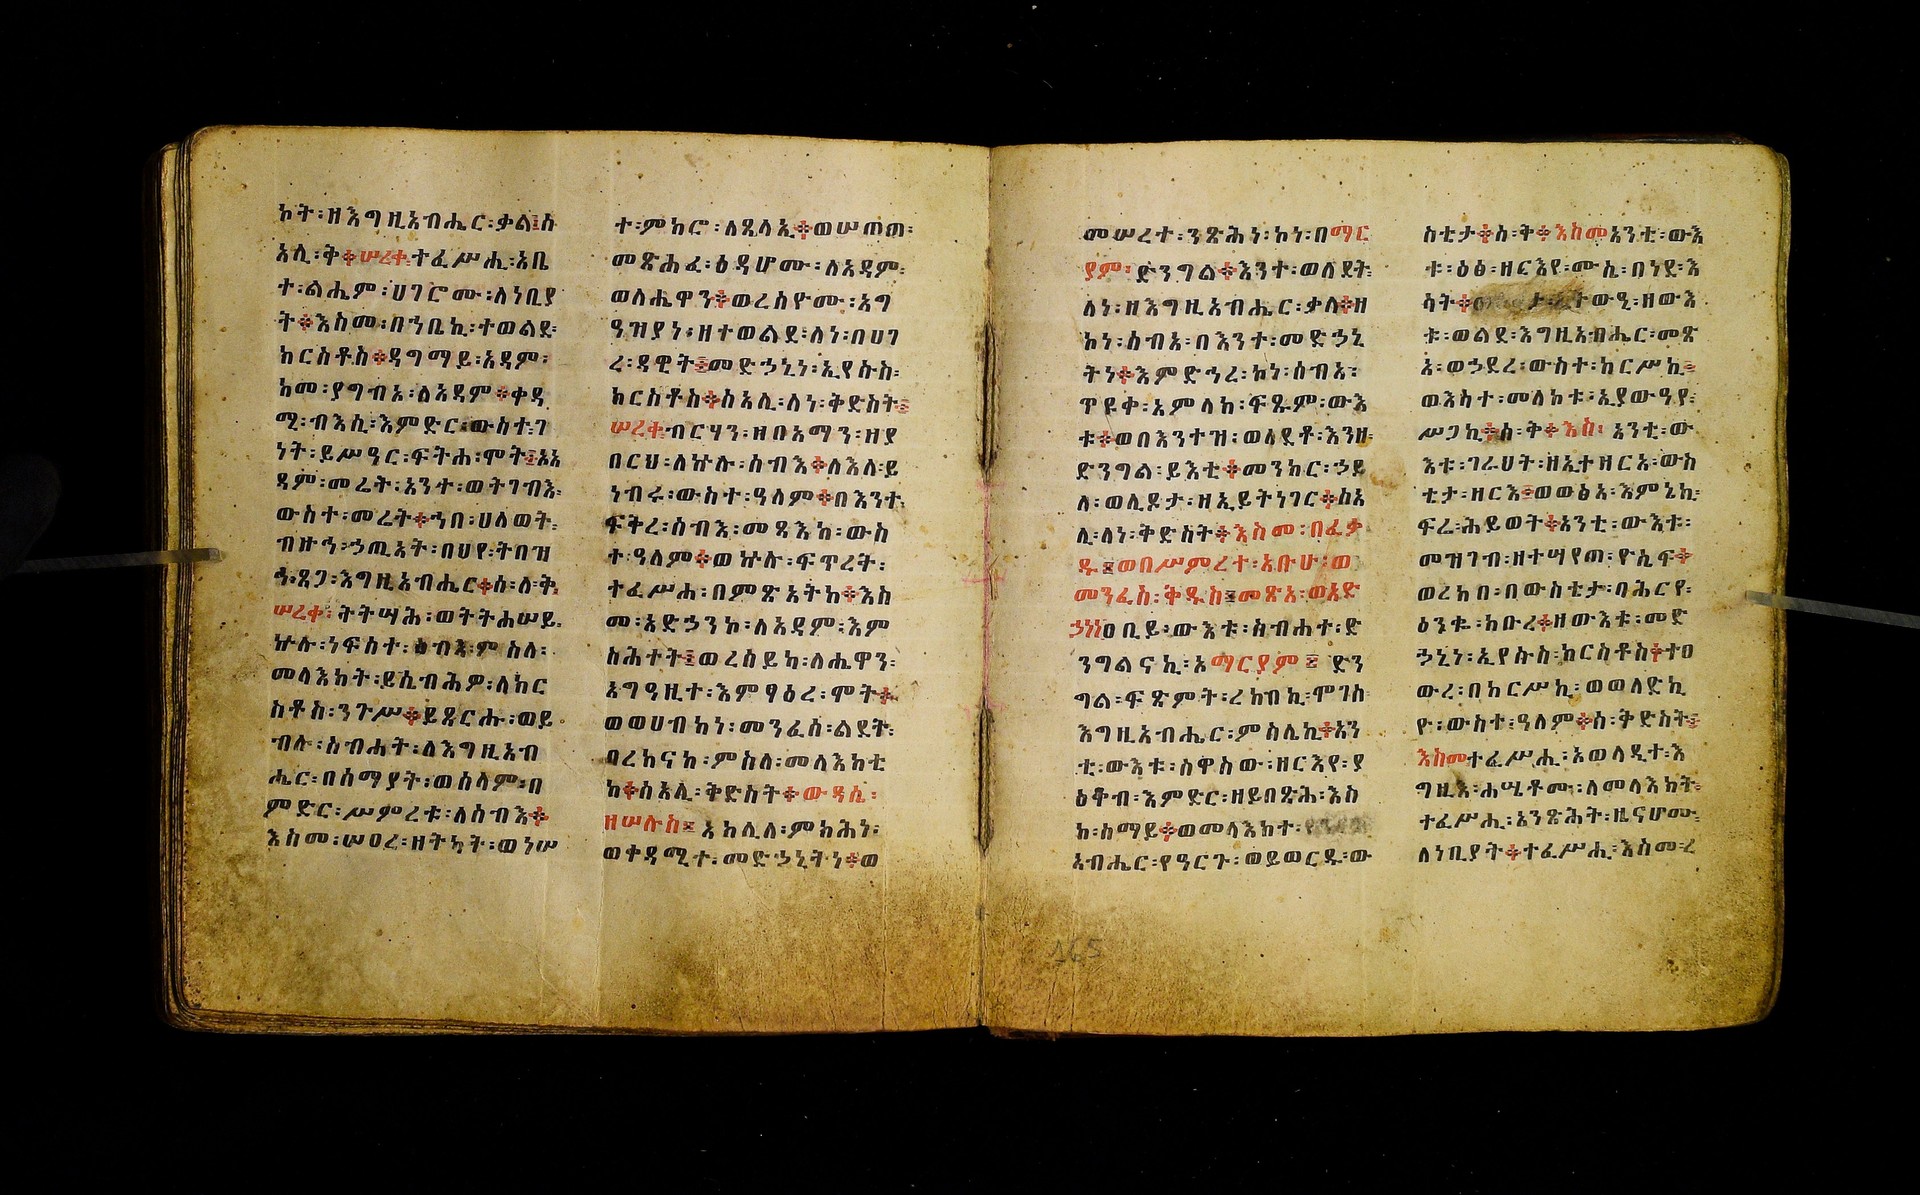 ኮት፡ዘእግዚአብሔር፡ቃል፤ስ
አሊ፡ቅ፨ሠረቀ፡ተፈሥሒ፡አቤ
ተ፡ልሔም፡ሀገሮሙ፡ለነቢያ
ት፨እስመ፡በኀቤኪ፡ተወልደ፡
ክርስቶስ፨ዳግማይ፡አዳም፡
ከመ፡ያግብአ፡ለአዳም፨ቀዳ
ሚ፡ብእሲ፡እምድር፡ውስተ፡ገ
ነት፡ይሥዓር፡ፍትሐ፡ሞት፤አአ
ዳም፡መሬት፡አንተ፡ወትገብእ፡
ውስተ፡መሬት፨ኀበ፡ሀለወት፡
ብዙኅ፡ኃጢአት፡በህየ፡ትበዝ
ኅ፡ጸጋ፡እግዚአብሔር፨ሰ፡ለ፡ቅ፡
ሠረቀ፡ትትሣሕ፡ወትትሐሠይ፡
ኵሉ፡ነፍስት፡ሰብእ፡ምስለ፡
መላእክት፡ይሴብሕዎ፡ለክር
ስቶስ፡ንጉሥ፨ይጸርሑ፡ወይ
ብሉ፡ስብሐት፡ለእግዚአብ
ሔር፡በሰማያት፡ወሰላም፡በ
ምድር፡ሥምረቱ፡ለሰብእ፨
እስመ፡ሠዐረ፡ዘትካት፡ወነሠ
ተ፡ምክሮ፡ለጸላኢ፨ወሠጠጠ፡
መጽሐፈ፡ዕዳሆሙ፡ለአዳም፡
ወለሔዋን፨ወረሰዮሙ፡አግ
ዓዝያነ፡ዘተወልደ፡ለነ፡በሀገ
ረ፡ዳዊት፤መድኃኒነ፡ኢየሱስ፡
ክርስቶስ፨ስአሊ፡ለነ፡ቅድስት፤
ሠረቀ፡ብርሃን፡ዘበአማን፡ዘያ
በርህ፡ለኵሉ፡ሰብእ፨ለእለ፡ይ
ነብሩ፡ውስተ፡ዓለም፨በእንተ፡
ፍቅረ፡ሰብእ፡መጻእከ፡ውስ
ተ፡ዓለም፨ወኵሉ፡ፍጥረት፡
ተፈሥሐ፡በምጽአትከ፨እስ
መ፡አድኃንኮ፡ለአዳም፡እም
ስሕተት፤ወረሰይካ፡ለሔዋን፡
አግዓዚተ፡እምፃዕረ፡ሞት፨
ወወሀብከነ፡መንፈሰ፡ልደት፡
ባረክናከ፡ምስለ፡መላእክቲ
ከ፨ስአሊ፡ቅድስት፨ውዳሴ፡
ዘሠሉስ፤አክሊለ፡ምክሕነ፡
ወቀዳሚተ፡መድኃኒትነ፨ወ
መሠረተ፡ንጽሕነ፡ኮነ፡በማር
ያም፡ድንግል፨እንተ፡ወለደት፡
ለነ፡ዘእግዚአብሔር፡ቃለ፨ዘ
ኮነ፡ሰብአ፡በእንተ፡መድኃኒ
ትነ፨እምድኅረ፡ኮነ፡ሰብአ፡
ጥዩቀ፡አምላክ፡ፍጹም፡ውእ
ቱ፨ወበእንተዝ፡ወለደቶ፡እንዘ፡
ድንግል፡ይእቲ፨መንክር፡ኃይ
ለ፡ወሊዶታ፡ዘኢይትነገር፨ስአ
ሊ፡ለነ፡ቅድስት፨እስመ፡በፈቃ
ዱ፤ወበሥምረተ፡አቡሁ፡ወ
መንፈስ፡ቅዱስ፤መጽአ፡ወአድ
ኃነነዐቢይ፡ውእቱ፡ስብሐተ፡ድ
ንግልናኪ፡አማርያም፤ድን
ግል፡ፍጽምት፡ረከብኪ፡ሞገስ
እግዚአብሔር፡ምስሌኪ፨አን
ቲ፡ውእቱ፡ሰዋስው፡ዘርእየ፡ያ
ዕቆብ፡እምድር፡ዘይበጽሕ፡እስ
ከ፡ሰማይ፨ወመላእክተ፡
አብሔር፡የዓርጉ፡ወይወርዱ፡ው
ስቲታ፨ስ፡ቅ፨እስመአንቲ፡ውእ
ቱ፡ዕፅ፡ዘርእየ፡ሙሴ፡በነደ፡እ
ሳት፨ ውዒ፡ዘውእ
ቱ፡ወልደ፡እግዚአብሔር፡መጽ
አ፡ወኃደረ፡ውስተ፡ከርሥኪ፤
ወእሳተ፡መለኮቱ፡ኢያውዓየ፡
ሥጋኪ፨ሰ፡ቅ፨እስ፡አንቲ፡ው
እቱ፡ገራህት፡ዘኢተዘርአ፡ውስ
ቲታ፡ዘርእ፨ወወፅአ፡እምኔኪ፡
ፍሬ፡ሕይወት፨አንቲ፡ውእቱ፡
መዝገብ፡ዘተሣየጠ፡ዮሴፍ፨
ወረከበ፡በውስቴታ፡ባሕርየ፡
ዕንቈ፡ክቡረ፨ዘውእቱ፡መድ
ኃኒነ፡ኢየሱስ፡ክርስቶስ፨ተፀ
ውረ፡በከርሥኪ፡ወወለድኪ
ዮ፡ውስተ፡ዓለም፨ስ፡ቅድስት፤
እስመተፈሥሒ፡አወላዲተ፡እ
ግዚእ፡ሐሤቶሙ፡ለመላእክት፡
ተፈሥሒ፡አንጽሕት፡ዜናሆሙ፡
ለነቢያት፨ተፈሥሒ፡እስመ፡ረ
165